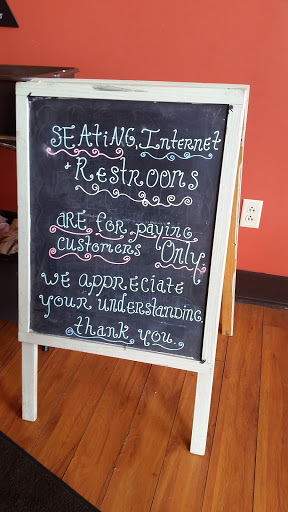 SEATING, Internet
+ RESTROOMS
ARE for paying
customers Only
WE APPRECIATE
your understanding
thank you.